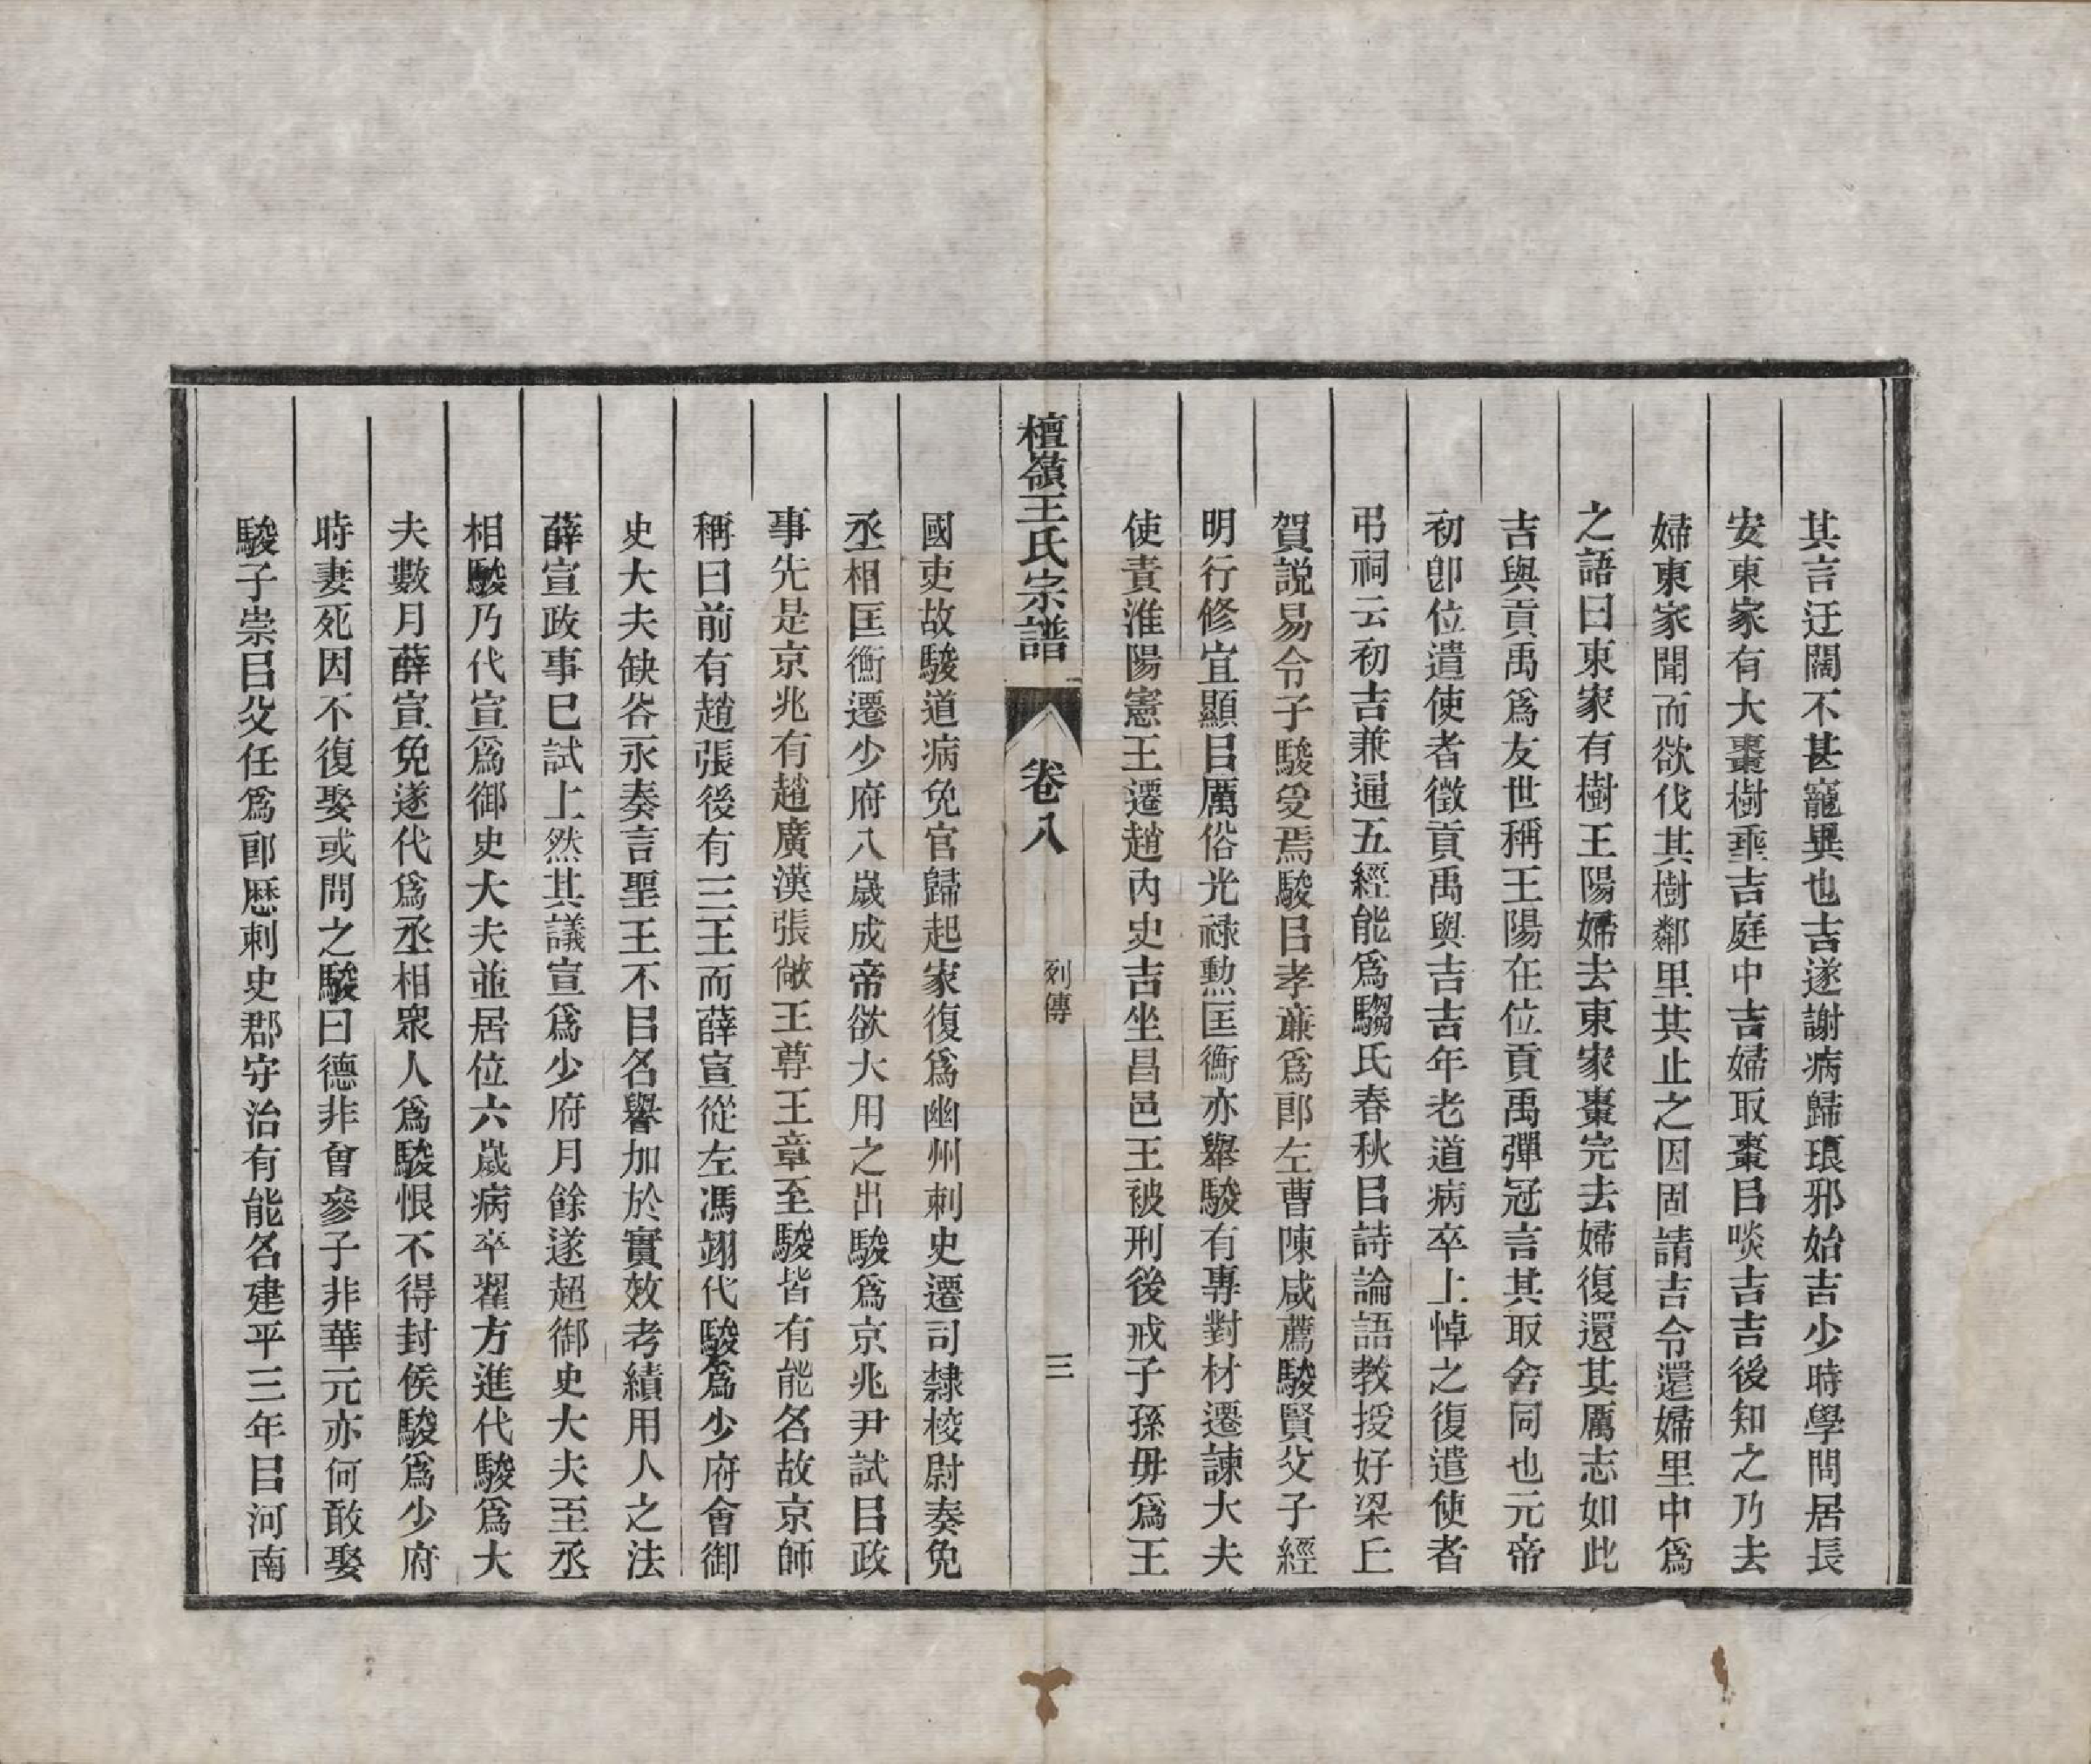 其言迂闊不甚寵異也吉遂謝病歸琅邪始吉少時學問居長
安東家有大棗樹垂吉庭中吉婦取棗㠯啖吉吉後知之乃去
婦東家聞而欲伐其樹鄰里其止之因固請吉令還婦里中爲
之語曰東家有樹王陽婦去東家棗完去婦復還其厲志如此
吉與貢禹爲友世稱王陽在位貢禹彈冠言其取舍同也元帝
初卽位遣使者徵貢禹與吉吉年老道病卒上悼之復遣使者
弔祠云初吉兼通五經能爲騶氏春秋㠯詩論語教授好梁丘
賀説易令子駿受焉駿㠯孝亷爲郎左曹陳咸薦駿賢父子經
明行修宜顯㠯厲俗光禄勲匡衡亦舉駿有專對材遷諫大夫
使責淮陽憲王遷趙内史吉坐昌邑王被刑後戒子孫毋爲王
檀嶺王氏宗譜 卷八 列傳 三
國吏故駿道病免官歸起家復爲幽州刺史遷司隸校尉奏免
丞相匡衡遷少府八歲成帝欲大用之出駿爲京兆尹試㠯政
事先是京兆有趙廣漢張敞王尊王章至駿皆有能名故京師
稱曰前有趙張後有三王而薛宣從左馮翊代駿爲少府會御
史大夫缺谷永奏言聖王不㠯名譽加於實效考績用人之法
薛宣政事已試上然其議宣爲少府月餘遂超御史大夫至丞
相駿乃代宣爲御史大夫並居位六歲病卒翟方進代駿爲大
夫數月薛宣免遂代爲丞相衆人爲駿恨不得封侯駿爲少府
時妻死因不復娶或問之駿曰德非曾參子非華元亦何敢娶
駿子崇㠯父任爲郎歷刺史郡守治有能名建平三年㠯河南